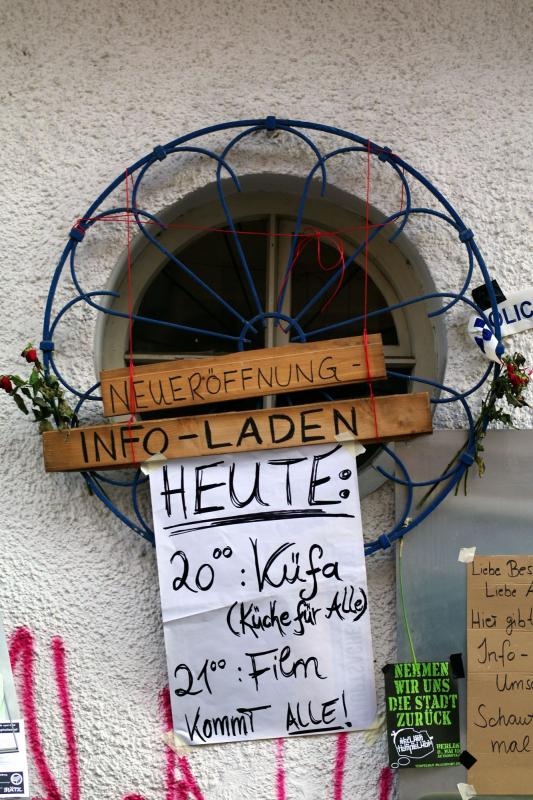 NEUERÖFFNUNG-
INFO-LADEN
HEUTE:
20⁰⁰: Küfa
(Küche für Alle)
21⁰⁰: Film
KOMMT ALLE!
OLIC
Liebe Bes
Liebe A
Hier gibt
Info-
Umso
Schau
mal
NEHMEN
WIR UNS
DIE STADT
ZURÜCK
BERLIN